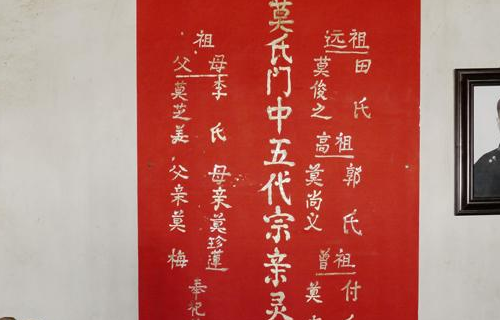 远祖
田氏
莫俊之
高祖
郭氏
莫尚义
曾祖
付氏
莫
莫氏门中五代宗亲灵
祖
父母
李氏
莫芝美
母亲莫珍莲
父亲莫梅
奉祀